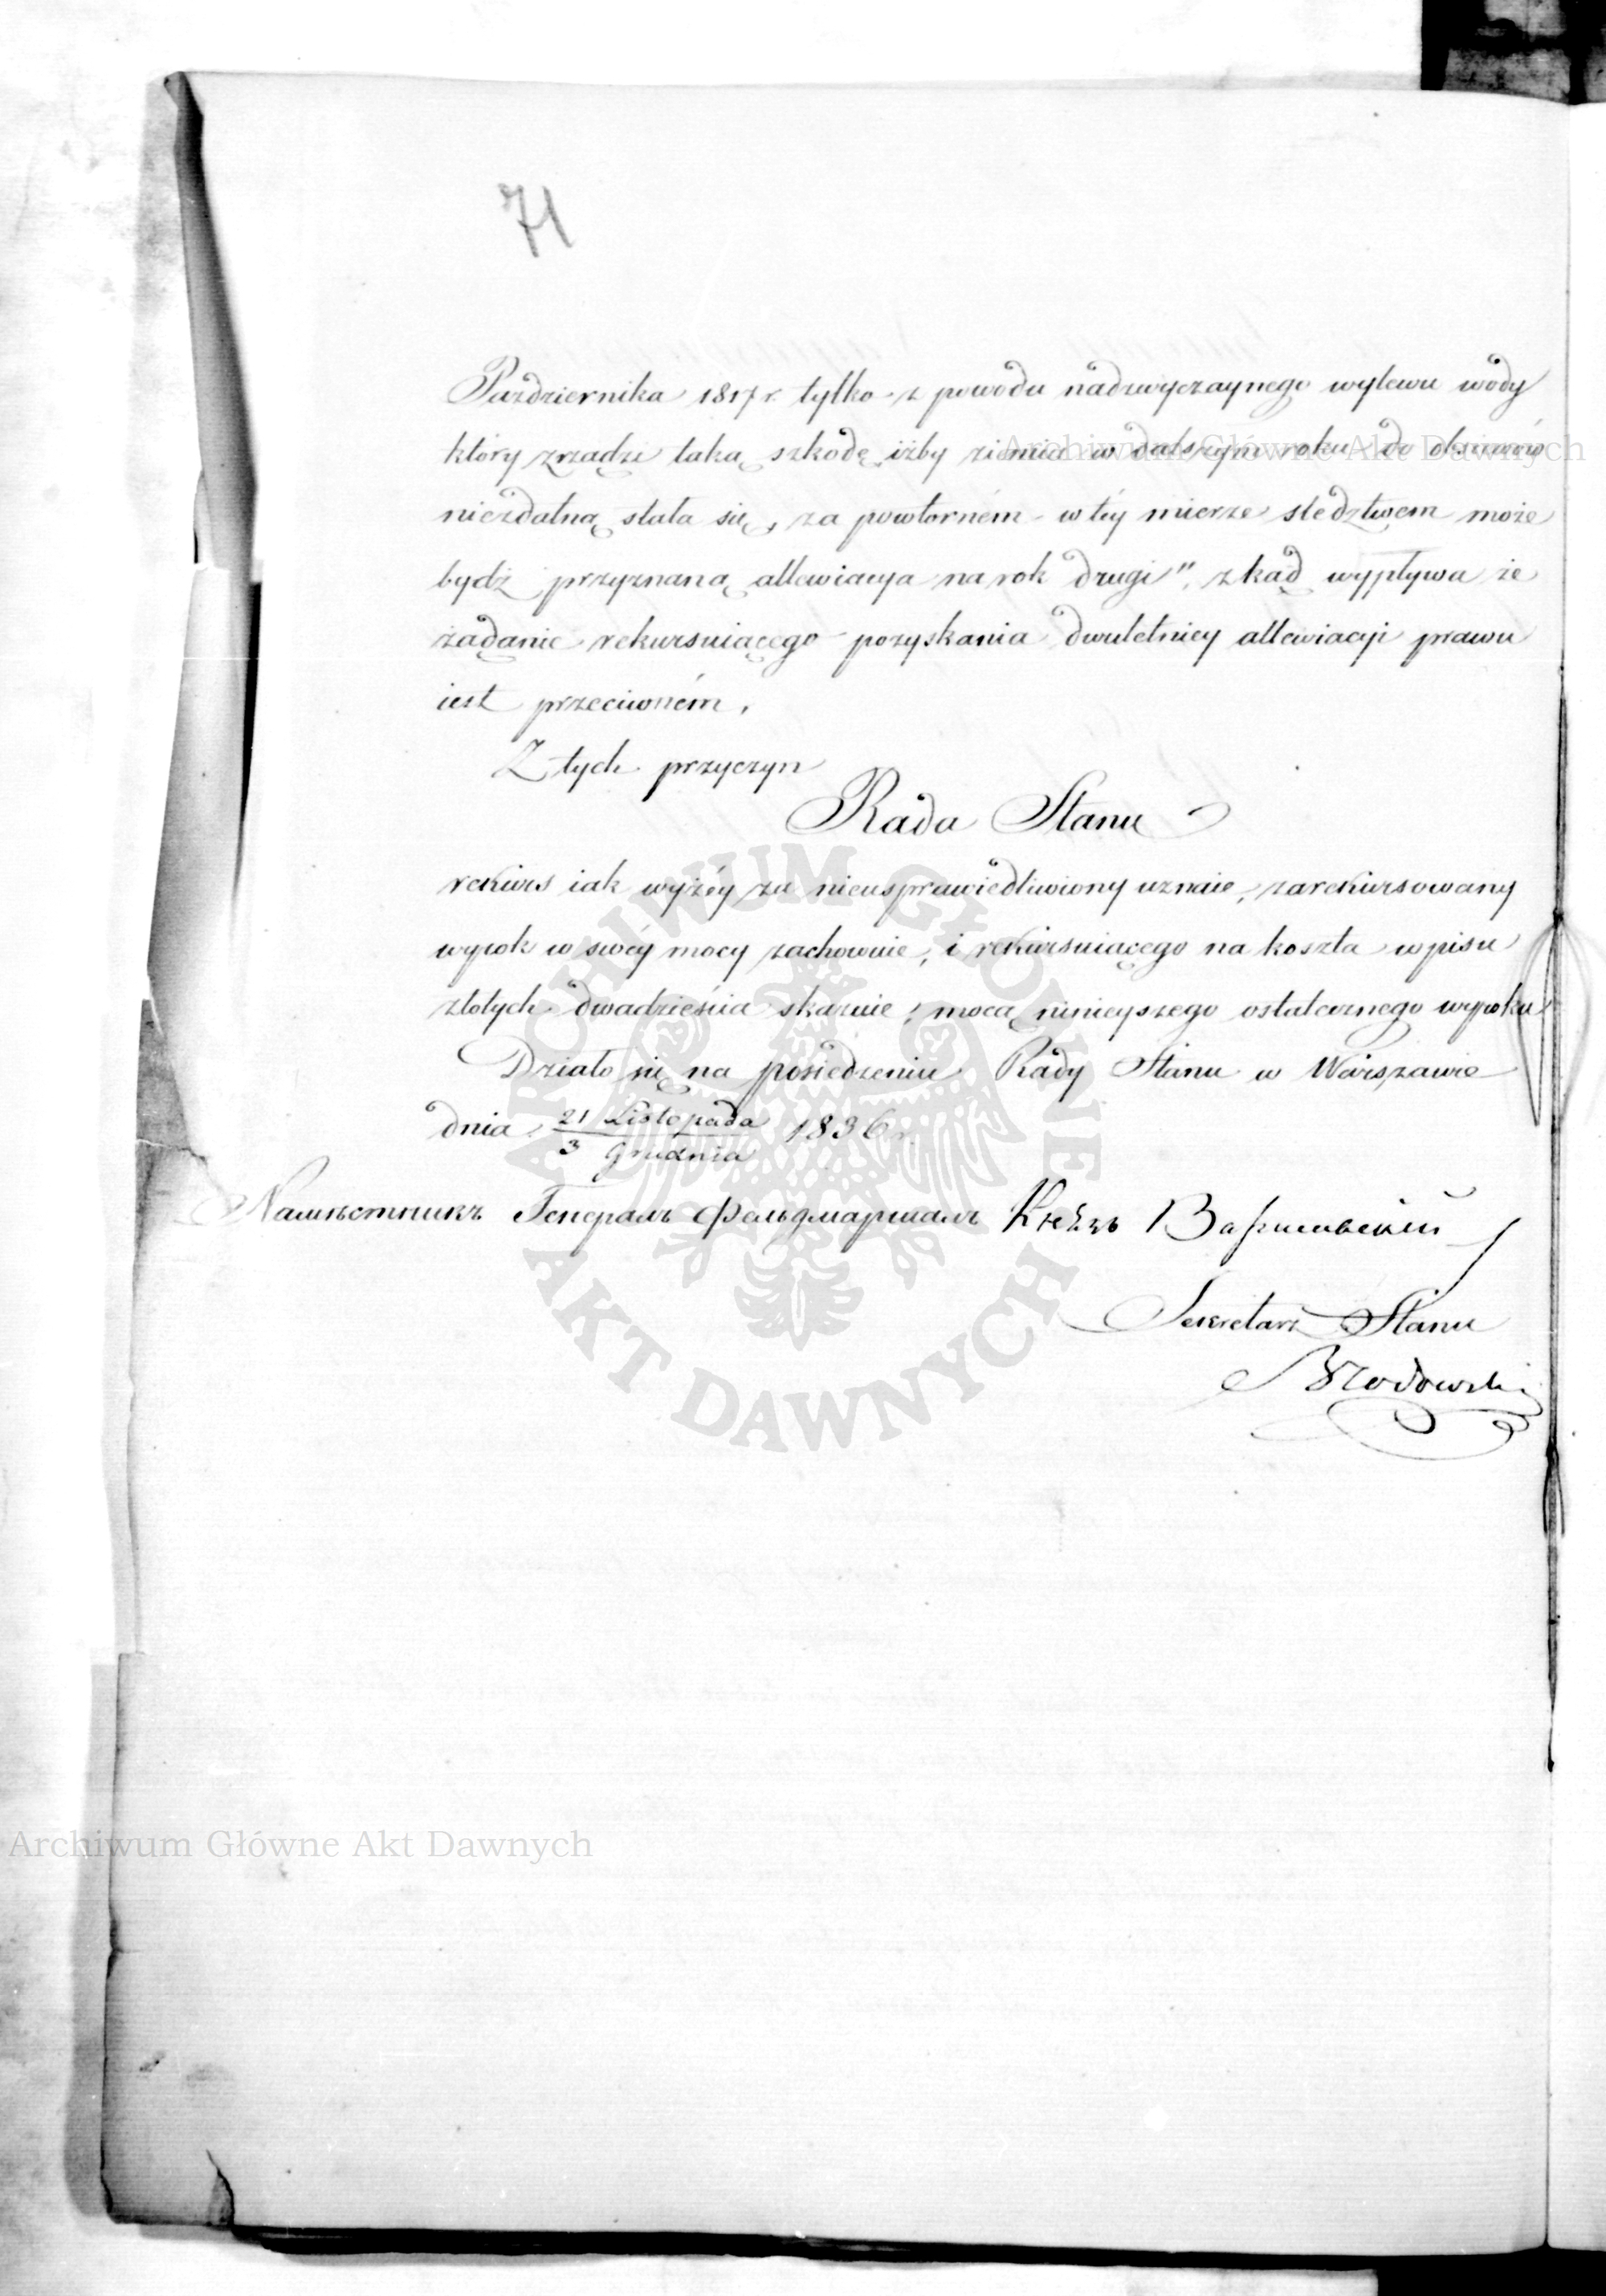 71
Października 1817 r. tylko z powodu nadzwyczaynego wylewu wody
który zrządzi taką szkodę, iżby ziemia w dalszym roku do obsiewów
niezdatną stała się, za powtórném w téy mierze śledztwem może
bydź przyznaną allewiacya na rok drugi", zkąd wypływa że
żądanie rekursuiącego pozyskania dwuletniey allewiacyi prawu
iest przeciwném.
Z tych przyczyn
Rada Stanu
rekurs iak wyżéy za nieusprawiedliwiony uznaie, zarekursowany
wyrok w swéy mocy zachowuie, i rekursuiącego na koszta wpisu
złotych dwadzieścia skazuie; mocą ninieyszego ostatecznego wyroku
Działo się na posiedzeniu Rady Stanu w Warszawie
dnia 21 Listopada / 3 Grudnia 1836 r.
Намѣстникъ Генералъ Фельдмаршалъ Князь Варшавскій
Sekretarz Stanu
Brodowski
Archiwum Główne Akt Dawnych
Archiwum Główne Akt Dawnych
ARCHIWUM GŁÓWNE
AKT DAWNYCH